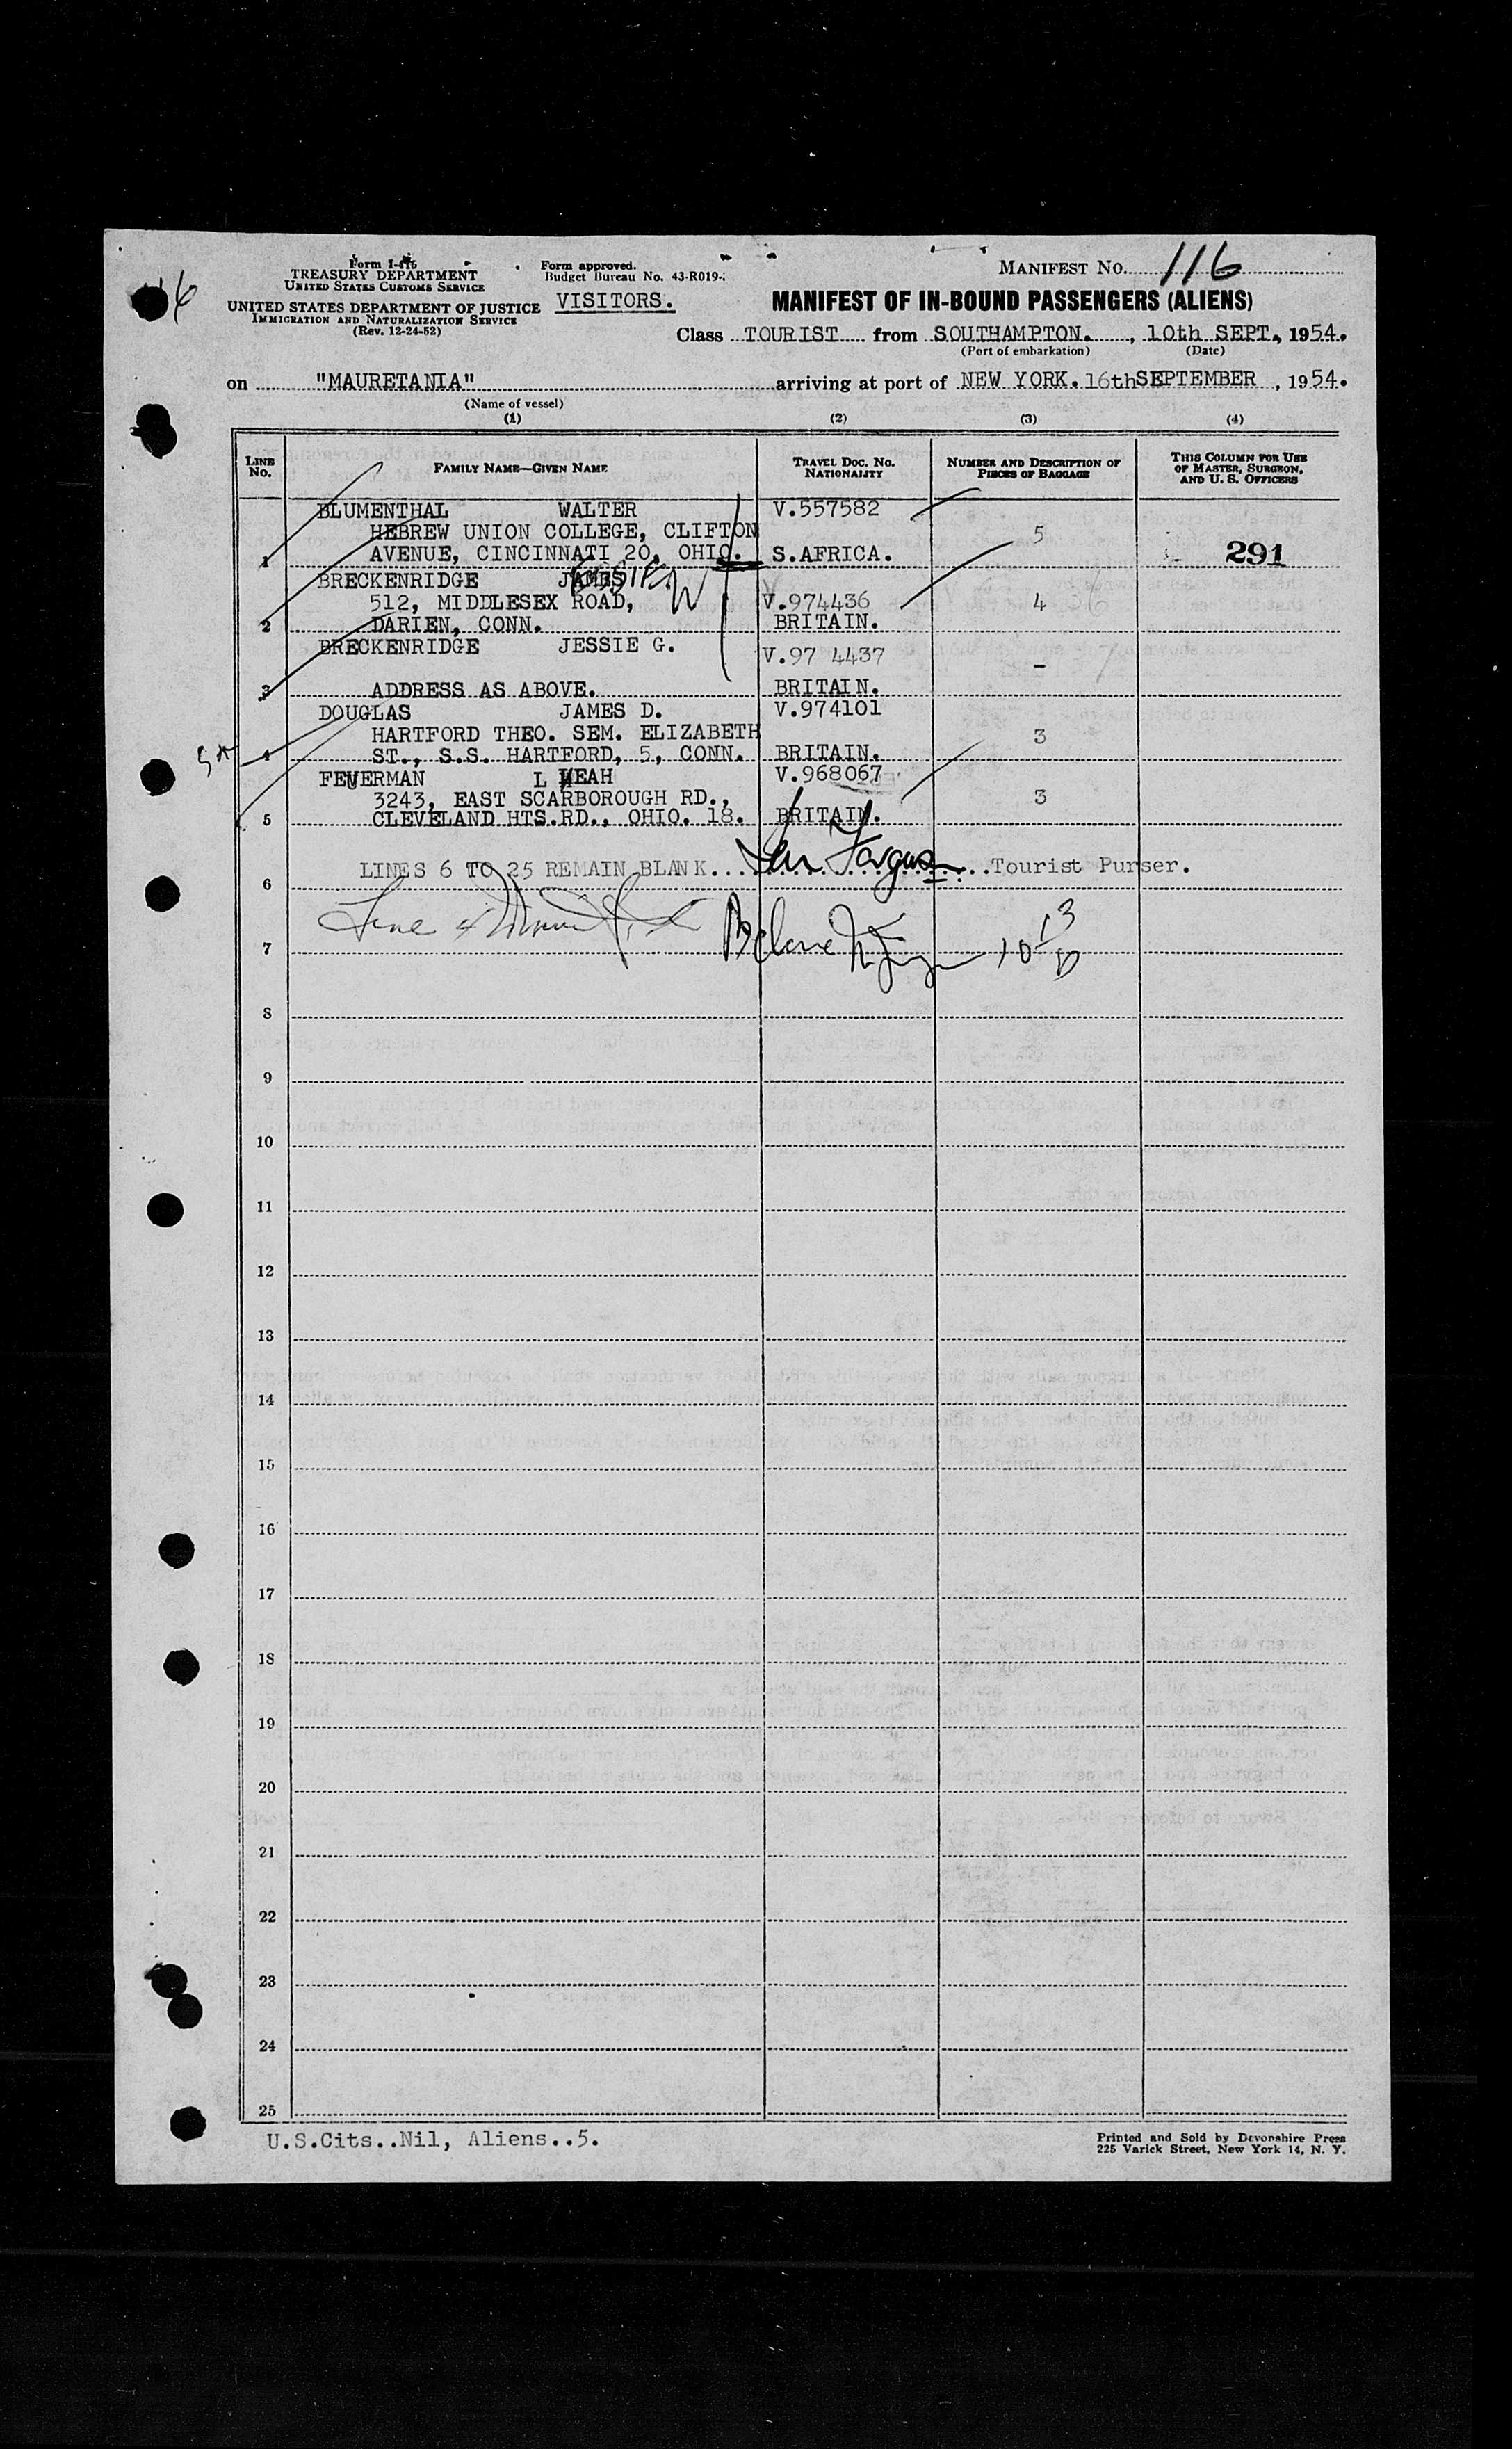 Form I-415
TREASURY DEPARTMENT
UNITED STATES CUSTOMS SERVICE
UNITED STATES DEPARTMENT OF JUSTICE
IMMIGRATION AND NATURALIZATION SERVICE
(Rev. 12-24-52)
Form approved.
Budget Bureau No. 43-R019-
VISITORS.
MANIFEST NO. 116
MANIFEST OF IN-BOUND PASSENGERS (ALIENS)
Class TOURIST from SOUTHAMPTON., 10th SEPT., 1954.
(Port of embarkation) (Date)
on "MAURETANIA" arriving at port of NEW YORK. 16th SEPTEMBER, 1954.
(Name of vessel)
(1) (2) (3) (4)
LINE NO. FAMILY NAME—GIVEN NAME TRAVEL DOC. NO. NATIONALITY NUMBER AND DESCRIPTION OF PIECES OF BAGGAGE THIS COLUMN FOR USE OF MASTER, SURGEON, AND U. S. OFFICERS
BLUMENTHAL WALTER V.557582
HEBREW UNION COLLEGE, CLIFTON 5
1 AVENUE, CINCINNATI 20, OHIO. S.AFRICA. 291
BRECKENRIDGE JAMES
512, MIDDLESEX ROAD, V.974436 4
2 DARIEN, CONN. BRITAIN.
BRECKENRIDGE JESSIE G. V.97 4437 -
3 ADDRESS AS ABOVE. BRITAIN.
DOUGLAS JAMES D. V.974101
HARTFORD THEO. SEM. ELIZABETH 3
4 ST., S.S. HARTFORD, 5, CONN. BRITAIN.
FEUERMAN LEAH V.968067
3243, EAST SCARBOROUGH RD., 3
5 CLEVELAND HTS.RD., OHIO. 18. BRITAIN.
LINES 6 TO 25 REMAIN BLANK. Tourist Purser.
6
7
8
9
10
11
12
13
14
15
16
17
18
19
20
21
22
23
24
25
U.S.Cits..Nil, Aliens..5.
Printed and Sold by Devonshire Press
225 Varick Street, New York 14, N. Y.